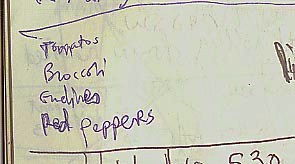 Tomatos
Broccoli
Endives
Red Peppers
530